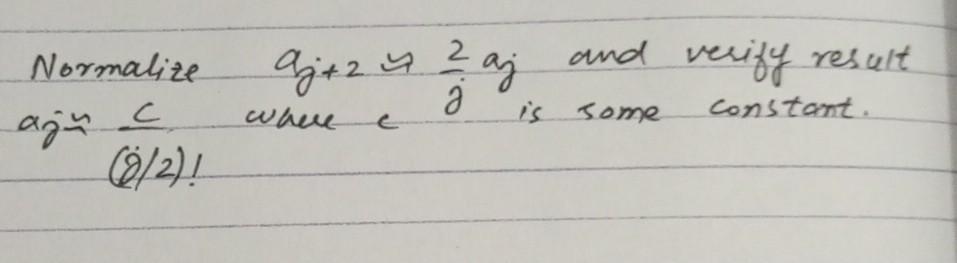 Normalize a_{j+2} ≈ \frac{2}{j} a_j and verify result
a_j ≈ \frac{C}{(j/2)!} where c is some constant.